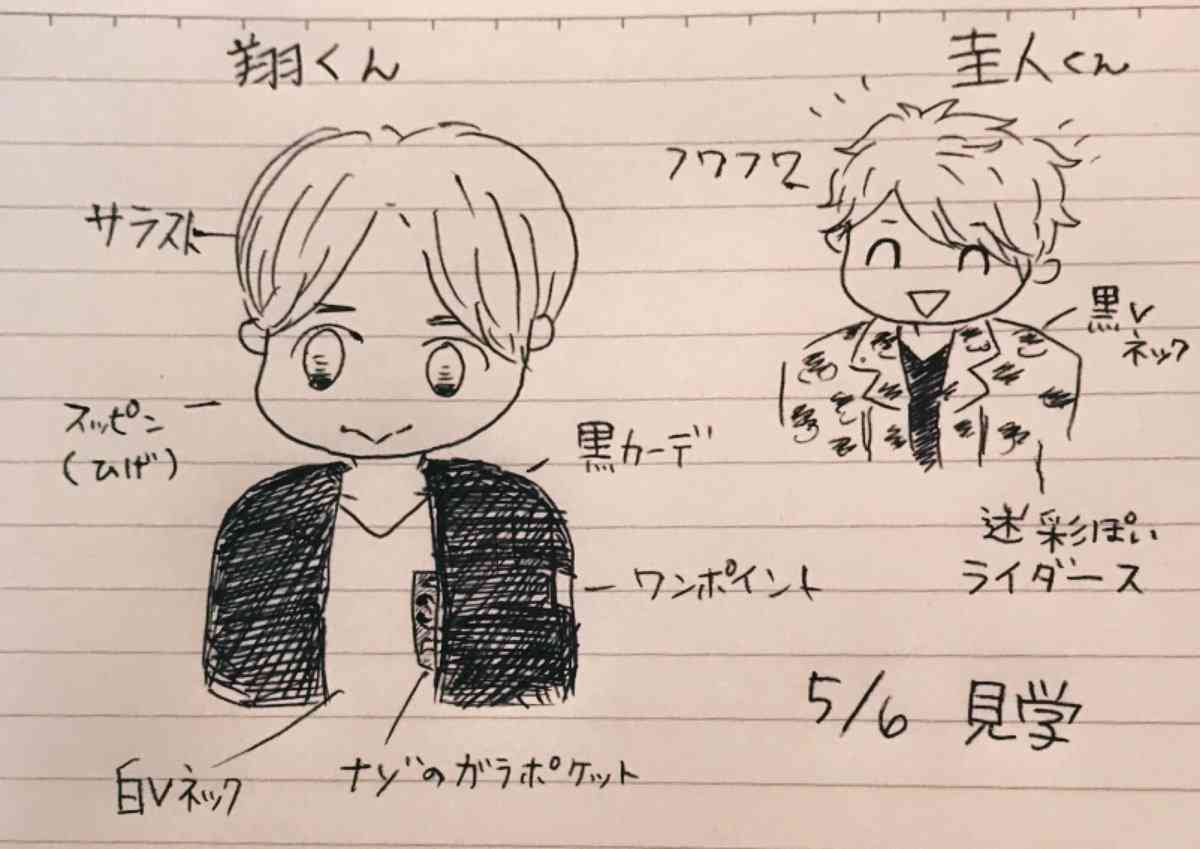 翔くん
サラスト
スッピン
(ひげ)
黒カーデ
ワンポイント
白Vネック
ナゾのガラポケット
圭人くん
フワフワ
黒V
ネック
迷彩ぽい
ライダース
5/6 見学